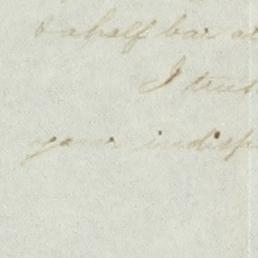 & a half bar a
I trus
your indisp